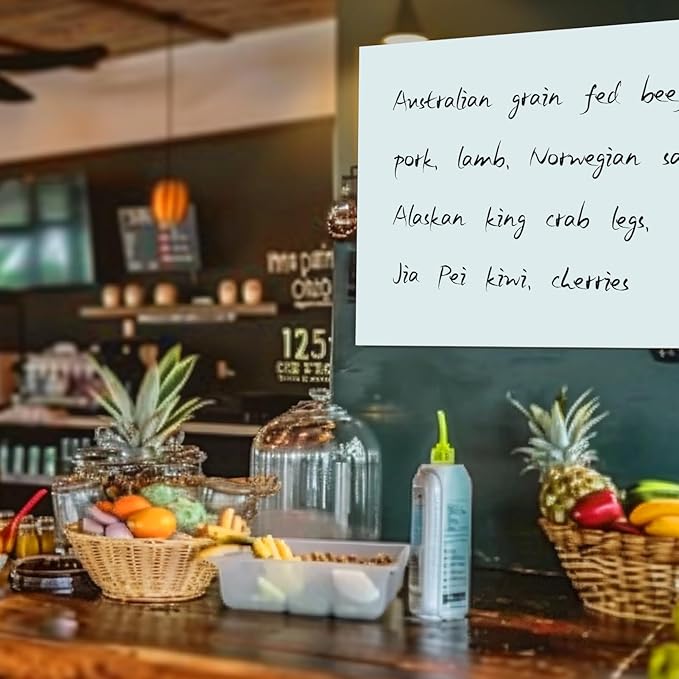 Australian grain fed bee
pork, lamb, Norwegian sa
Alaskan king crab legs,
Jia Pei kiwi, cherries
125